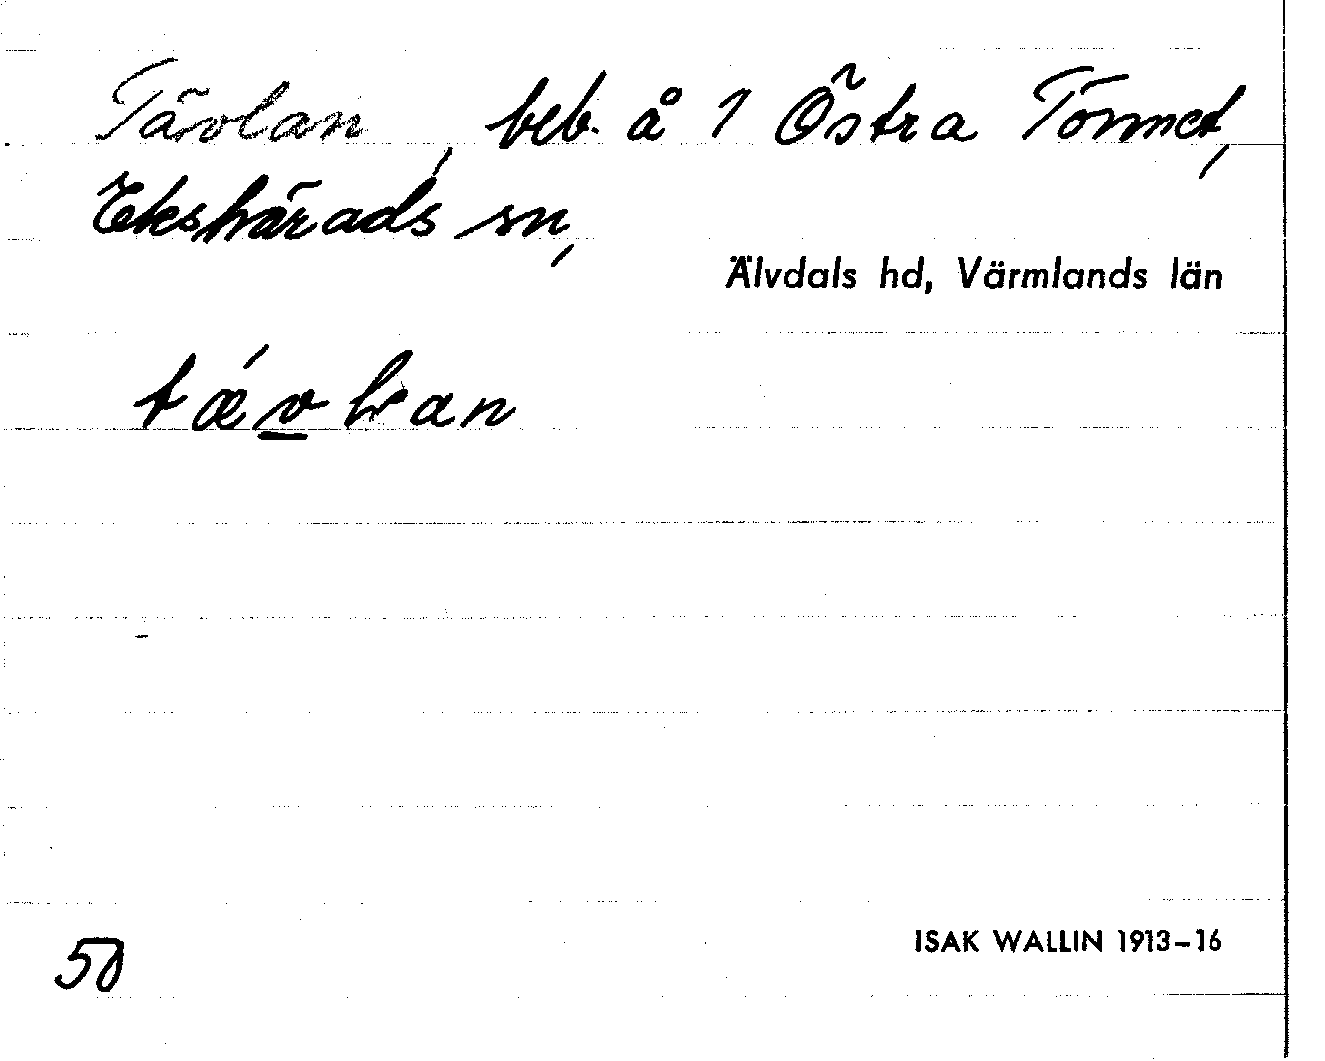 Tävlan, beb. å 1 Östra Tönnet,
Ekshärads sn,
Älvdals hd, Värmlands län
ISAK WALLIN 1913–16
50